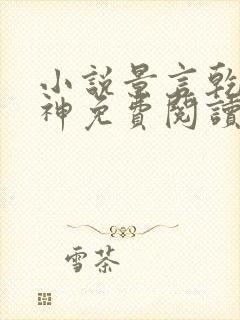 小說景言乾
神免費閱讀
雪茶